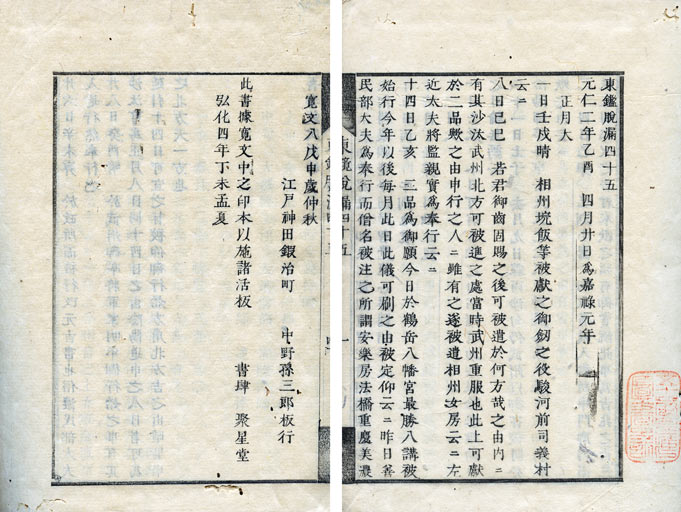 東鑑脱漏四十五
元仁二年乙酉 四月廿日爲嘉祿元年
正月大
一日壬戌晴 相州埦飯等被獻之御劔之役駿河前司義村
云々
八日己巳 若君御歯固賜之後可被遣於何方哉之由内々
有其沙汰武州北方可被進之處當時武州重服也此上可獻
於二品歟之由申行之人々雖有之遂被遣相州女房云々左
近大夫將監親實爲奉行云々
十四日乙亥 二品爲御願今日於鶴岳八幡宮最勝八講被
始行今年以後每月此日此儀可刷之由被定仰云々昨日善
民部大夫爲奉行而僧名被注之所謂安樂房法橋重慶美濃
東鏡脱漏四十五
一
寛文八戊申歲仲秋
江戸神田鍜冶町 中野孫三郎板行
此書據寛文中之印本以施諸活板
弘化四年丁未孟夏 書肆 聚星堂